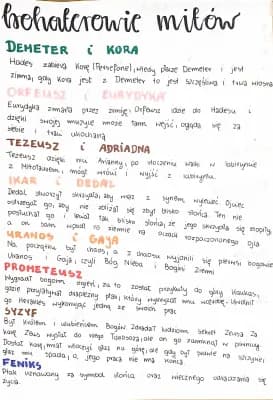 bohaterowie mitów
DEMETER i KORA
Hades zabiera Korę (Persefonę), wtedy płacze Demeter i jest
zimna, gdy Kora jest z Demeter to jest szczęśliwa i trwa wiosna
ORFEUSZ i EURYDYKA
Eurydyka zmarła przez żmiję, Orfeusz idzie do Hadesu i
dzięki swojej muzyce może tam wejść, ogląda się za
siebie i traci ukochaną
TEZEUSZ i ADRIADNA
Tezeusz dzięki nici Arianny, po stoczeniu walki w labiryncie
z Minotaurem, mógł wrócić i wyjść z labiryntu.
IKAR i DEDAL
Dedal stworzył skrzydła, aby wraz z synem wylecieć. Ojciec
ostrzegał go, aby nie zbliżał się zbyt blisko słońca. Ten nie
posłuchał go i leciał tak blisko słońca, że jego skrzydła się stopiły,
a on sam wpadł na ziemię na oczach rozpaczonego ojca
URANOS i GAJA
Na początku był chaos, a z chaosu wyłonili się pierwsi bogowie
Uranos i Gaja, czyli Bóg Nieba i Bogini Ziemi
PROMETEUSZ
Wygradł bogom ogień, za to został przykuty do góry Kaukaz,
gdzie przylatywał drapieżny ptak, który wygryzał mu wątrobę.
go Herakles wykonując jedną ze swoich prac
SYZYF
Był królem i ulubieńcem Bogów. Zdradził ludziom sekret Zeusa. Za
karę Zeus wysłał do niego Tanatosa, ale on go zamknął w piwnicy.
Dostał karę, miał wtoczyć głaz na górę, ale gdy był prawie na szczycie,
głaz mu spadał, a jego praca nie ma końca
FENIKS
Ptak uznawany za symbol słońca oraz wiecznego odradzania się
życia.